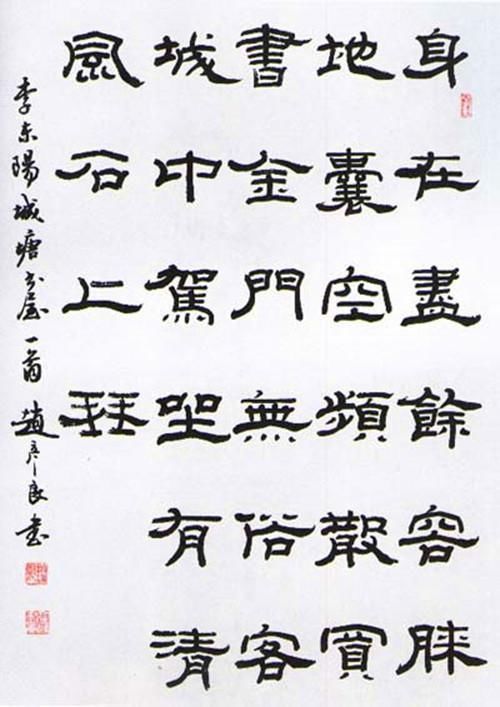 身在盡餘容膝
地囊空頻散買
書金門無俗客
城中駕坐有清
風石上琴
李東陽城塘書屋一首 趙彥良書